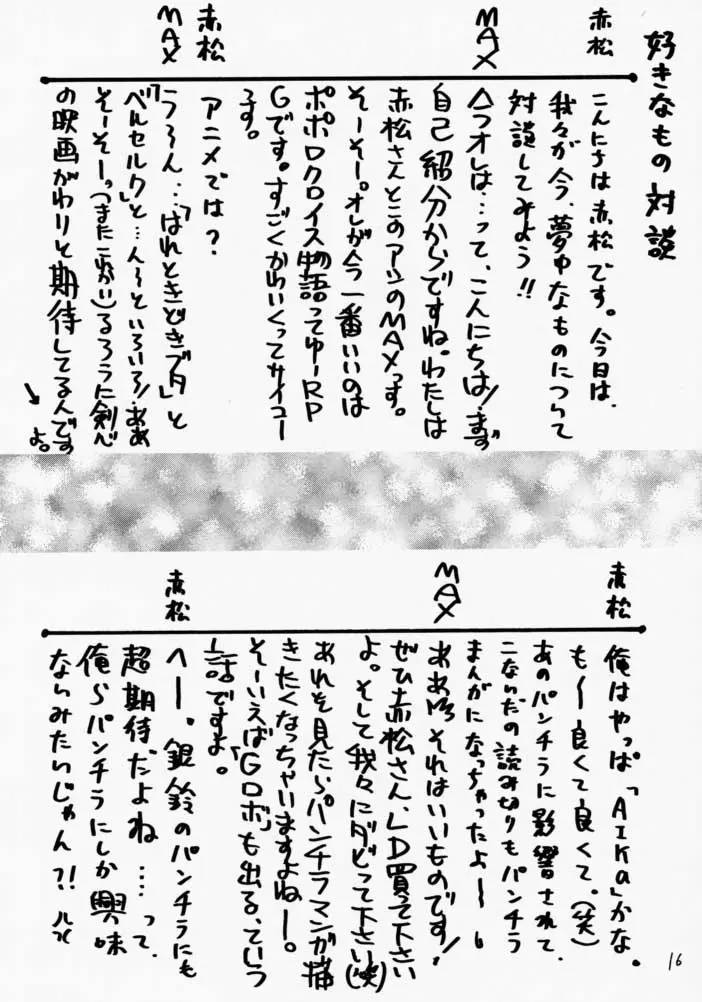 好きなもの対談
赤松
こんにちは赤松です。今日は、
我々が今、夢中なものについて
対談してみよう!!
MAX
へつオレは…って、こんにちは!まず
自己紹分からですね。わたしは
赤松さんとこのアシのMAXっす。
そーそー。オレが今一番いいのは
ポポロクロイス物語ってゆーRP
Gです。すごくかわいくってサイコー
です。
赤松
アニメでは?
MAX
う〜ん…「はれときどきブタ」と
「ベルセルク」と…ん〜といろいろ!ああ
そーそーっ(またこれかい)るろうに剣心
の映画がわりと期待してるんです
よ。
赤松
俺はやっぱ「AIKa」かな。
も〜良くて良くて。(笑)
あのパンチラに影響されて、
こないだの読み切りもパンチラ
まんがになっちゃったよ〜
MAX
ああ それはいいものです!
ぜひ赤松さん、LD買って下さい
よ。そして我々にダビって下さい(笑)
あれを見たらパンチラマンガ描
きたくなっちゃいますよねー。
そーいえば「Gロボ」も出る、ていう
話ですよ。
赤松
へー。銀鈴のパンチラにも
超期待だよね……って、
俺らパンチラにしか興味
ないみたいじゃん?!
16